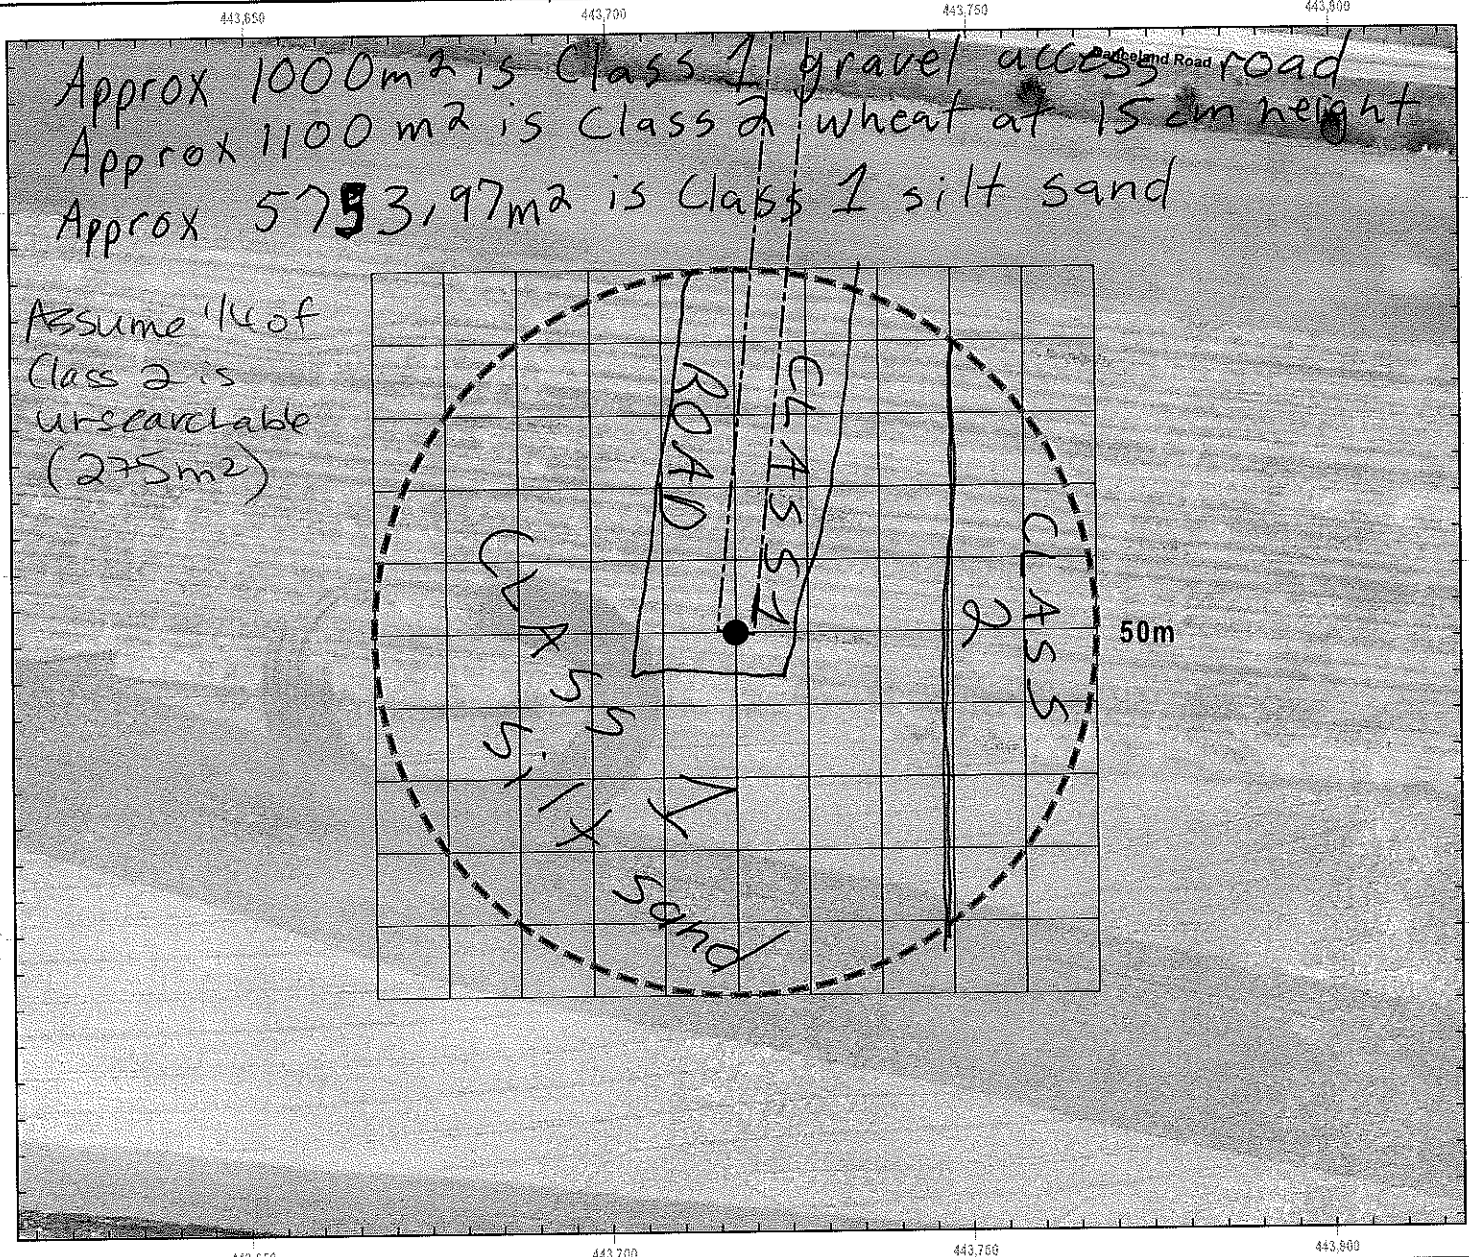 443,650 443,700 443,750 443,800
Approx 1000m² is Class 1 gravel access road
Road
Approx 1100 m² is Class 2 wheat at 15 cm height
Approx 5753,97m² is Class 1 silt sand
Assume 1/4 of
Class 2 is
unsearchable
(275m²)
ROAD
CLASS 1
CLASS
2
50m
CLASS 1
Silt Sand
443,700 443,750 443,800